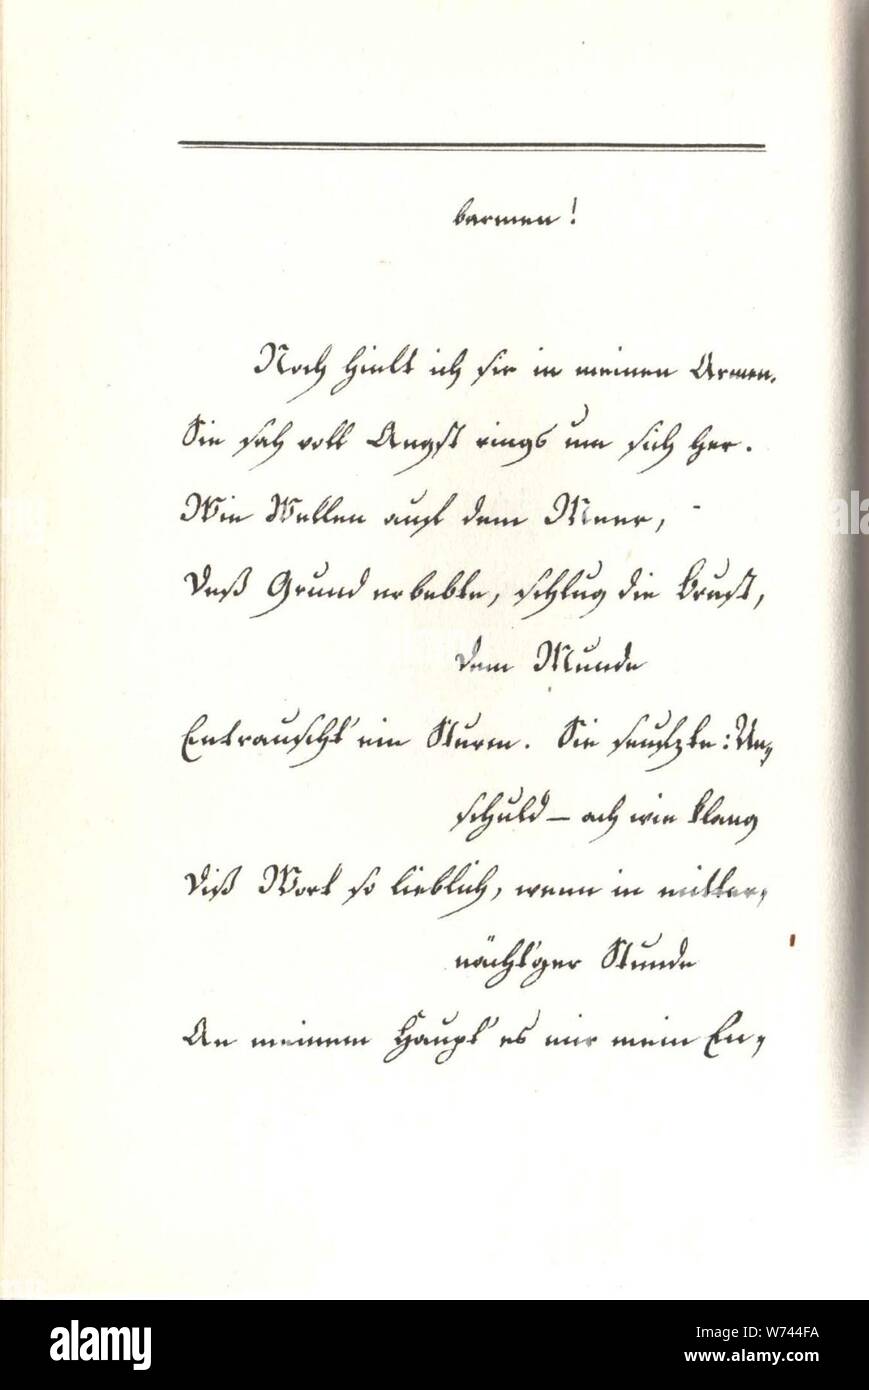 barmen!
Noch hielt ich sie in meinen Armen.
Sie sah voll Angst rings um sich her.
Wie Wellen auf dem Meer,
Deß Grund erbebte, schlug die Brust,
dem Munde
Entrauscht' ein Sturm. Sie seufzte: Un-
schuld – ach wie klang
Diß Wort so lieblich, wenn in mitter-
nächt'ger Stunde
An meinem Haupt' es mir mein En-
alamy
Image ID: W744FA
www.alamy.com